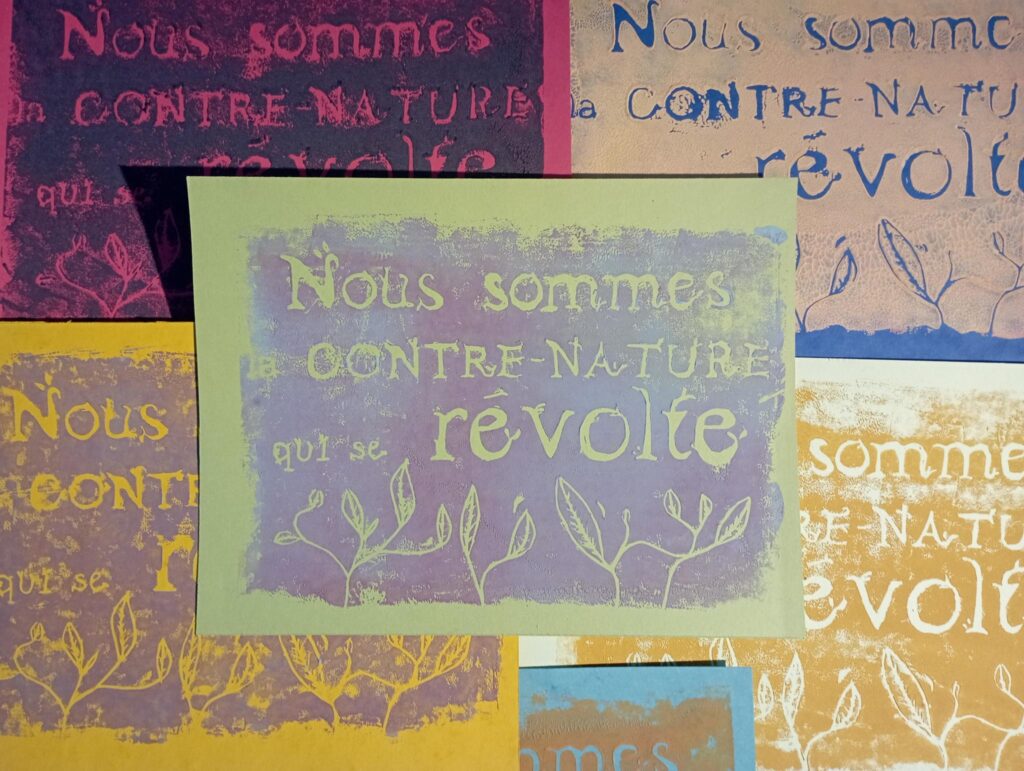 Nous sommes
la CONTRE-NATURE
qui se révolte
Nous somme
la CONTRE-NATU
révolte
Nous sommes
la CONTRE-NATURE
qui se révolte
Nous
CONT
qui se r
sommes
RE-NATU
évolte
mmes